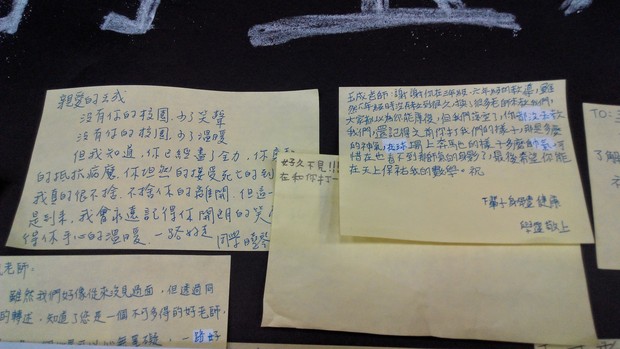 親愛的玉成
沒有你的校園少了笑聲
沒有你的校園少了溫暖
但我知道,你已經盡了全力,你
的抵抗病魔,你坦然的接受死亡的到
我真的很不捨,不捨你的離開,但這一
是到來,我會永遠記得你開朗的笑
得你手心的溫暖,一路好走 同學
好久不見!!!
在和你打一
玉成老師:謝謝你在三年級、六年級的教導,雖
然六年級時沒有教到很久,換了很多老師來教我們,
大家都以為你能康復,但我們錯了,你卻沒去教
我們,還記得之前你打我們的樣子,
的神氣,在球場上奔馳的樣子多麼帥氣,可
惜在也看不到那帥氣的身影了,最後希望你能
在天上保祐我的數學。祝
下輩子身體健康
學生 敬上
TO:
了解
老師,
雖然我們好像從來沒見過面,但透過同
的轉述,知道了您是一個不可多得的好老師,
一路好